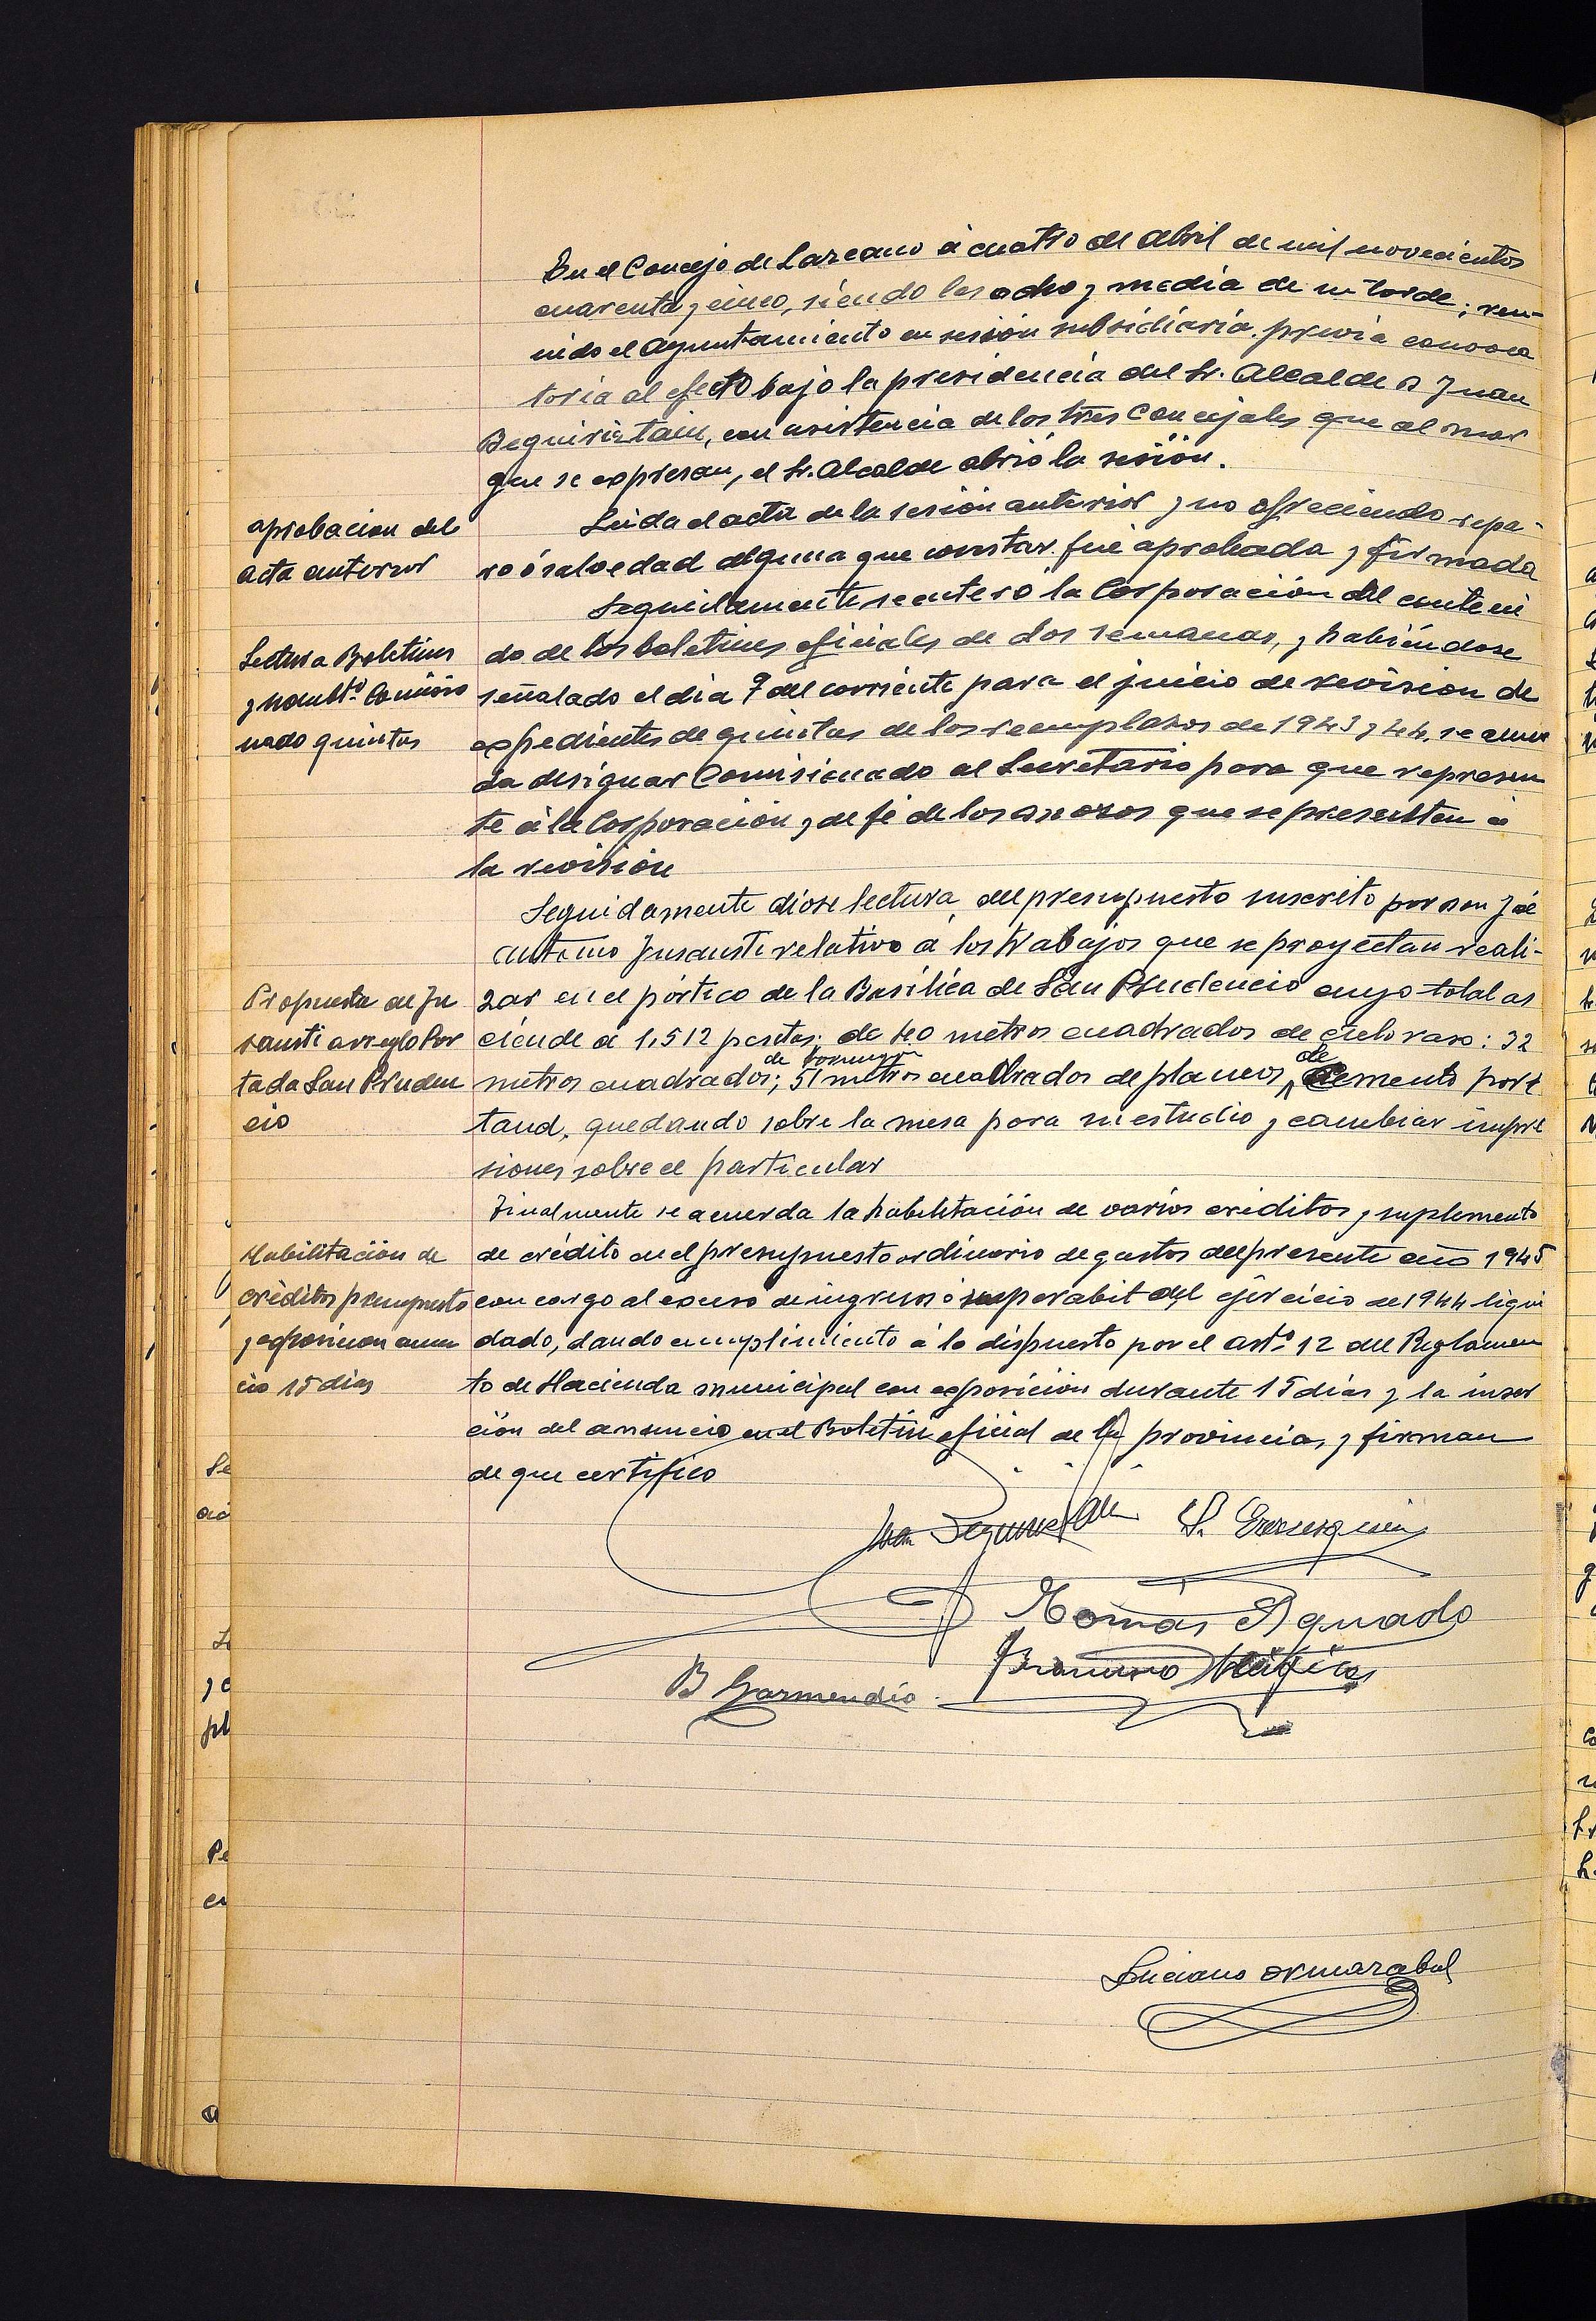 En el Concejo de Lazcano á cuatro de Abril de mil novecientos
cuarenta y cinco, siendo las ocho y media de su tarde; reu-
nido el Ayuntamiento en sesión subsidiaria previa convoca
toria al efecto bajo la presidencia del Sr. Alcalde D Juan
Beguiristain, con asistencia de los tres Concejales que al mar
gen se expresan, el Sr. Alcalde abrió la sesión.
aprobacion del
acta anterior
Leida el acta de la sesión anterior y no ofreciendo repa-
ro ó salvedad alguna que constar fué aprobada y firmada
Lectura Boletines
y nombtº Comisio
nado quintas
Seguidamente se enteró la Corporación del conteni
do de los boletines oficiales de dos semanas, y habiéndose
señalado el dia 7 del corriente para el juicio de revision de
expedientes de quintas de los reemplazos de 1943 y 44, se acuer
da designar Comisionado al Secretario para que represen
te á la Corporación y de fé de los mozos que se presenten á
la revisión
Propuesta de Ju
sausti arreglo Por
tada San Pruden
cio
Seguidamente dióse lectura del presupuesto suscrito por don José
Antonio Jusausti relativo á los trabajos que se proyectan reali-
zar en el pórtico de la Basílica de San Prudencio cuyo total as
ciende á 1,512 pesetas: de 40 metros cuadrados de cielo raso: 32
metros cuadrados; 51 metros cuadrados de planeos de cemento port
land, quedando sobre la mesa para su estudio y cambiar impre
siones sobre el particular
Habilitación de
créditos presupuesto
y exposicion anun
cio 15 dias
Finalmente se acuerda la habilitación de varios créditos y suplemento
de crédito en el presupuesto ordinario de gastos del presente año 1945
con cargo al exceso de ingresos ó superabit del ejercicio de 1944 liqui
dado, dando cumplimiento á lo dispuesto por el artº 12 del Reglamen
to de Hacienda municipal con exposición durante 15 dias y la inser
ción del anuncio en el Boletín oficial de la provincia, y firman
de que certifico
Juan Beguiristain
Tomás Aguado
B Garmendia
Luciano Ormazabal